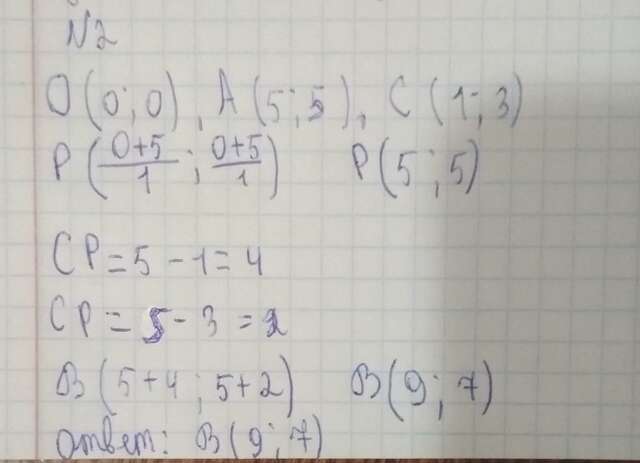 N2
O(0;0), A(5;5), C(1;3)
P((0+5)/1; (0+5)/1) P(5;5)
CP=5-1=4
CP=5-3=2
B(5+4; 5+2) B(9;7)
ответ: B(9;7)